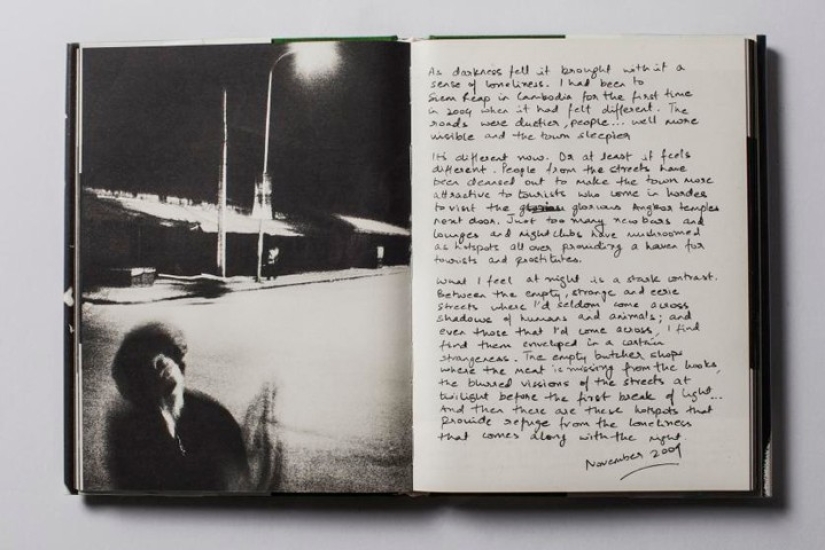 As darkness fell it brought with it a
sense of loneliness. I had been to
Siem Reap in Cambodia for the first time
in 2004 when it had felt different. The
roads were dustier, people... well more
visible and the town sleepier
It's different now. Or at least it feels
different. People from the streets have
been cleansed out to make the town more
attractive to tourists who come in hordes
to visit the glorious Angkor temples
next door. Just too many new bars and
lounges and nightclubs have mushroomed
as hotspots all over providing a haven for
tourists and prostitutes.
What I feel at night is a stark contrast.
Between the empty, strange and eerie
streets where I'd seldom come across
shadows of humans and animals; and
even those that I'd come across, I find
find them enveloped in a certain
strangeness. The empty butcher shops
where the meat is missing from the hooks,
the blurred vissions of the streets at
twilight before the first break of light...
And then there are these hotspots that
provide refuge from the loneliness
that comes along with the night.
November 2009